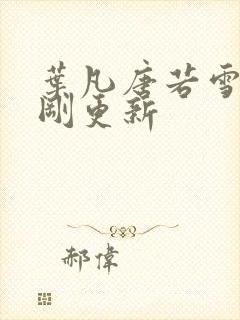 葉凡唐若雪
剛更新
郝偉